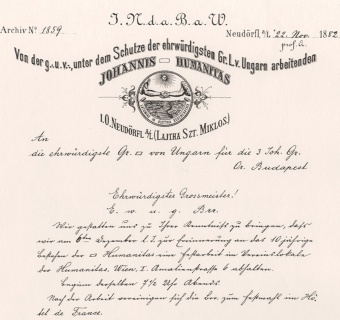 I. N. d. a. B. a. W.
Archiv Nº 1859
Neudörfl a/L 22. Nov. 1882
prof. d.
Von der g. u. v., unter dem Schutze der ehrwürdigsten Gr. L. v. Ungarn arbeitenden
JOHANNIS □ HUMANITAS
I. O. NEUDÖRFL A/L. (LAJTHA SZT. MIKLOS.)
An
die ehrwürdigste Gr. □ von Ungarn für die 3 Joh. Gr.
Or. Budapest
Ehrwürdigster Grossmeister!
E. w. u. g. Brr.
Wir gestatten uns zu Ihrer Kenntniß zu bringen, daß
wir am 6ten Dezember l. J. zur Erinnerung an das 10jährige
Bestehen der □ Humanitas eine Festarbeit im Vereinslokale
der Humanitas, Wien, I. Amalienstraße 6 abhalten.
Beginn derselben 7½ Uhr Abends.
Nach der Arbeit vereinigen sich die Brr. zum Festmahl im Hô
tel de France.